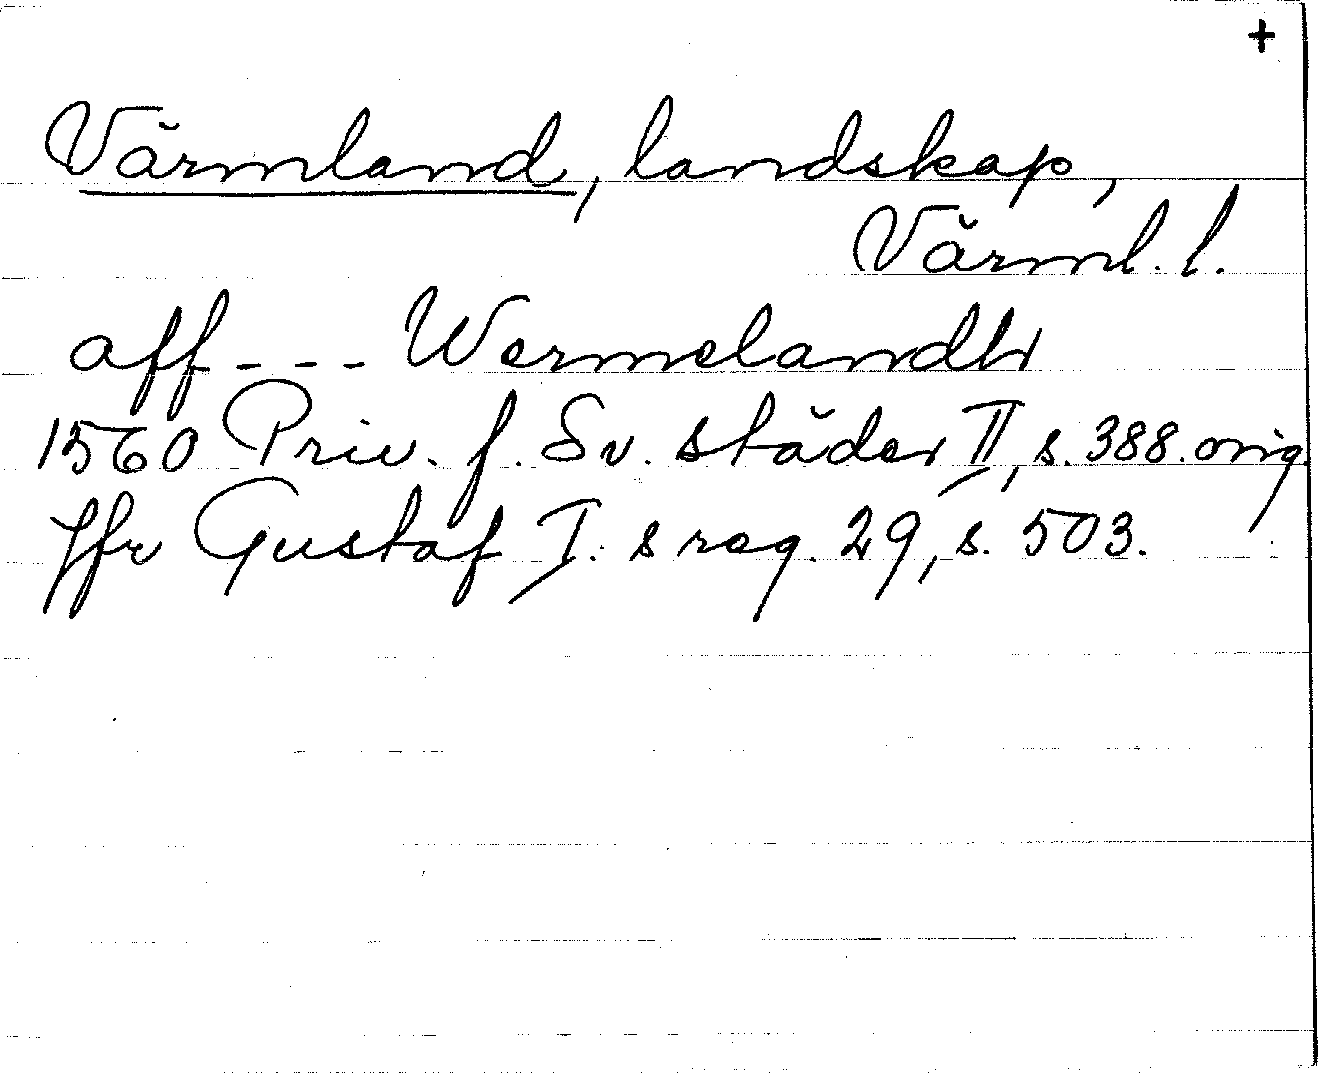 +
Värmland, landskap,
Värml. l.
aff - - - Wermelandh
1560 Priv. f. Sv. städer II, s. 388. orig.
Jfr Gustaf I:s reg. 29, s. 503.